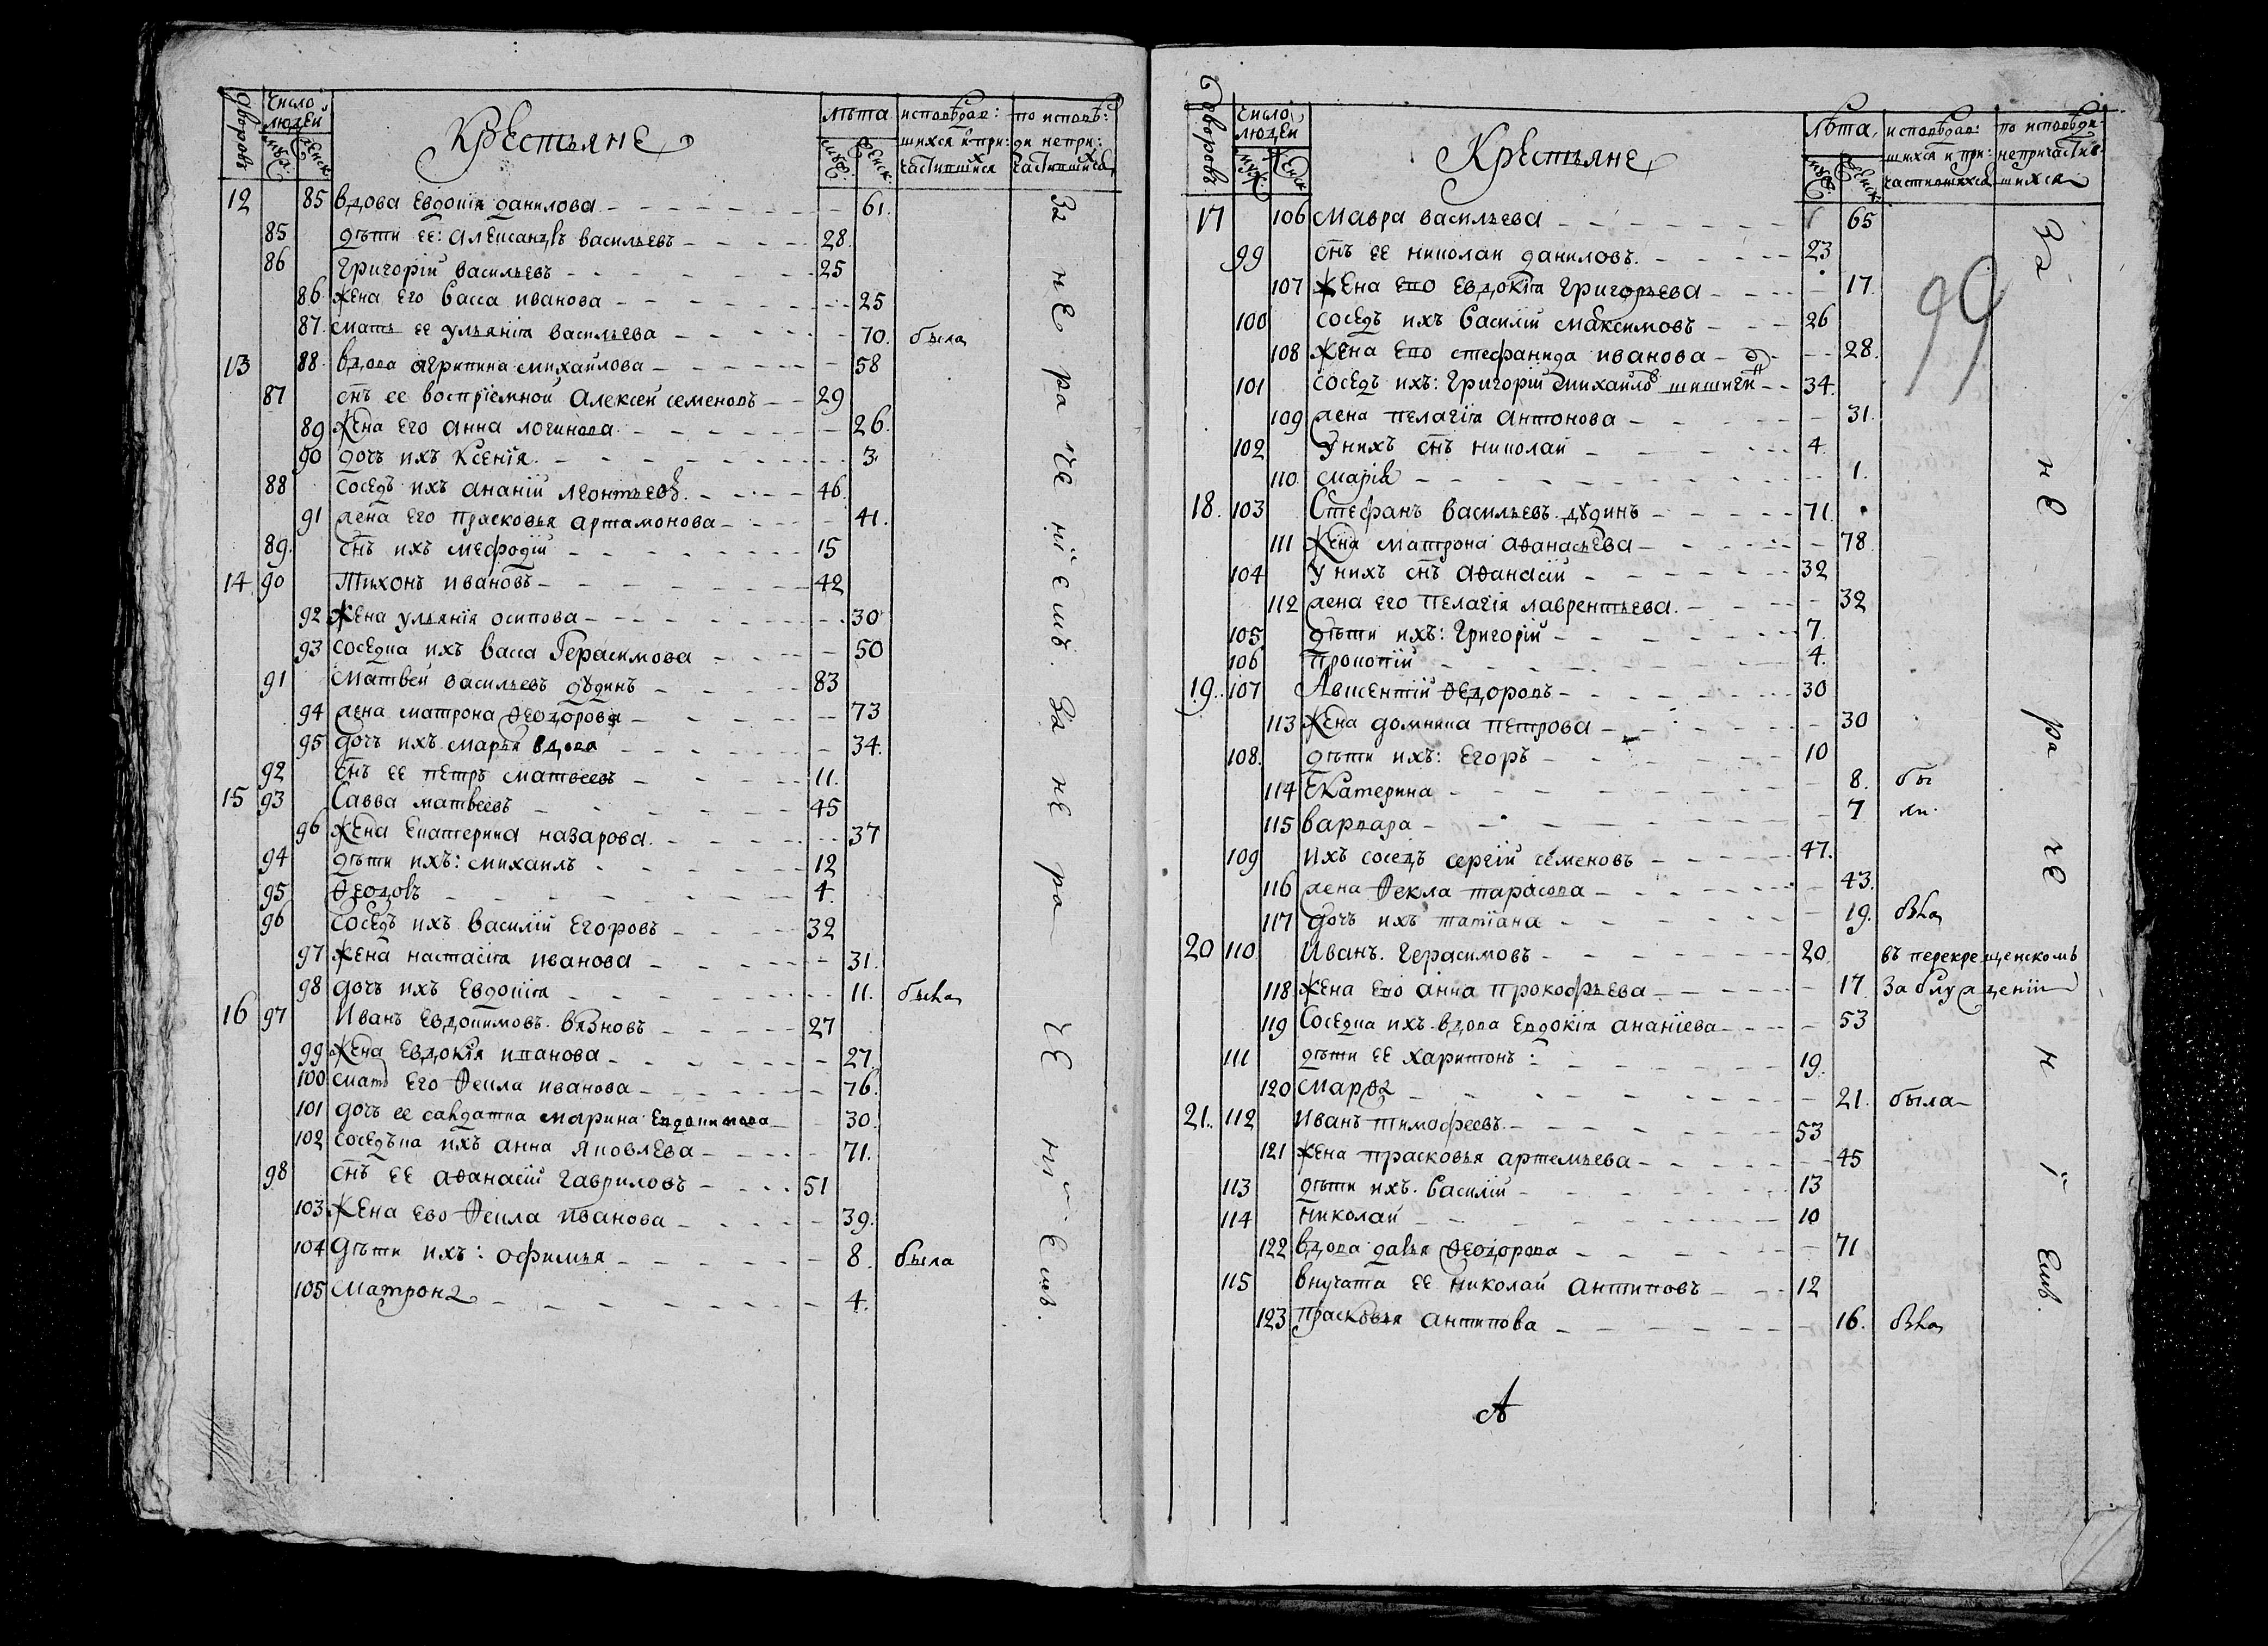 дворовъ
число людей
муж:
женск:
Крестьяне
лѣта
муж:
женск:
исповѣдав:
шихся и при:
частившихся
по исповѣ:
ди не при:
частившихся
12 85 вдова Евдокія данилова 61.
85 дѣти ее: алеѯандръ васильевъ 28.
86 григорій васильевъ 25
86 жена его васса иванова 25
87. мать ее ульянія васильева 70. была
13 88. вдова агрипина михаилова 58
87 снъ ее воспріемной алексей семеновъ 29
89 жена его анна логинова 26.
90 дочь ихъ Ксенія 3.
88 соседъ ихъ ананій леонтьевъ. 46.
91 жена его прасковья артамонова 41.
89. снъ ихъ мефодій 15
14 90 Тихонъ ивановъ 42
92 жена ульянія осипова 30
93 соседка ихъ васса Герасимова 50
91 матвей васильевъ дудинъ 83
94 жена матрона Ѳеодорова 73
95 дочь ихъ марья вдова 34.
92 снъ ее петръ матвеевъ 11.
15 93 Савва матвеевъ 45
96 жена екатерина назарова. 37
94 дѣти ихъ: михаилъ 12
95 Ѳеодоръ 4.
96 соседъ ихъ василій Егоровъ 32
97 жена настасія иванова 31.
98 дочь ихъ Евдокія 11. была
16 97 Иванъ Евдокимовъ. вязновъ 27
99 жена Евдокія иванова 27.
100 мать его Ѳекла иванова 76.
101 дочь ее салдатка марина Евдокимова 30.
102 соседька ихъ анна яковлева 71.
98 снъ ее аѳанасій гавриловъ 51
103 жена ево Ѳекла иванова 39.
104 дѣти ихъ: офимья 8. была
105 матрона 4.
За нерачениемъ. За нерачениемъ.
дворовъ
число людей
муж:
женск
Крестьяне
лѣта
муж:
женск:
исповѣдав:
шихся и при:
частившихся
по исповѣди
непричастив:
шихся
99
17 106 мавра васильева 65
99 снъ ее николаи даниловъ. 23
107 жена ево Евдокія григорьева 17.
100 соседъ ихъ василій максимовъ 26
108 жена ево стефанида иванова 28.
101 соседъ ихъ: григорій михаиловъ шишигинъ 34.
109 жена пелагія антонова 31.
102 у нихъ снъ николай 4.
110 марія 1.
18. 103 Стефанъ васильевъ дудинъ 71.
111 жена матрона аѳанасьева 78
104 у нихъ снъ аѳанасій 32
112 жена его пелагія лаврентьева. 32
105 дѣти ихъ: григорій 7.
106 прокопій 4.
19. 107 Авксентій Ѳедоровъ 30
113 жена домника петрова 30
108. дѣти ихъ: Егоръ 10
114 Екатерина 8. бы
115 варвара 7 ли.
109 ихъ соседъ сергій семеновъ 47.
116 жена Ѳекла тарасова 43.
117 дочь ихъ татіана 19. была
20 110 Иванъ. герасимовъ 20. въ перекрещенскомъ
118 жена ево анна прокофьева 17 заблуждении
119 Соседка ихъ вдова Евдокія ананіева 53
111 дѣти ее харитонъ: 19.
120 марѳа 21. была
21. 112 Иванъ тимофеевъ. 53
121 жена прасковья артемьева 45
113 дѣти ихъ. василій 13
114 николай 10
122 вдова дарья Ѳеодорова 71
115 внучата ее николай антиповъ 12
123 прасковья антипова 16. была
За нерачениемъ.